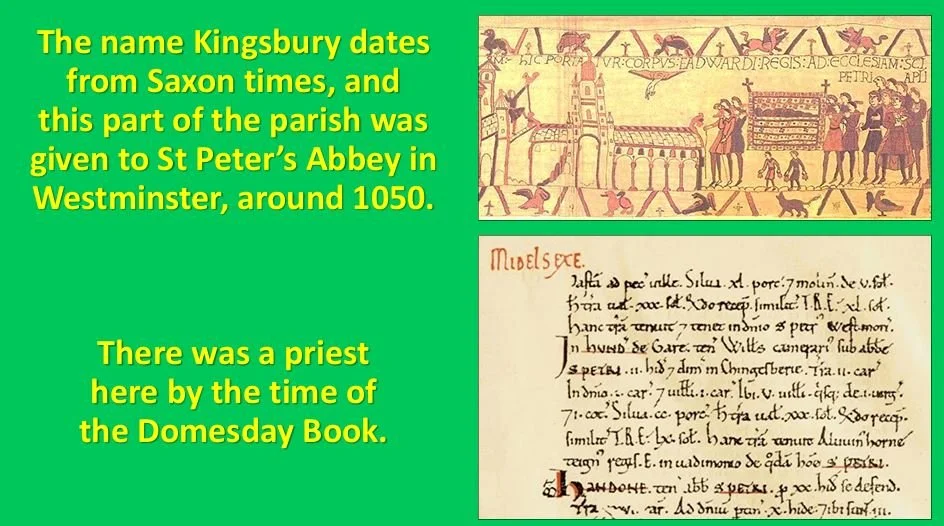 The name Kingsbury dates
from Saxon times, and
this part of the parish was
given to St Peter’s Abbey in
Westminster, around 1050.
HIC PORTATUR: CORPVS: EADWARDI: REGIS: AD: ECCLESIAM: SCI
PETRI APLI
There was a priest
here by the time of
the Domesday Book.
MIDELSEXE.
Pasta ad pec uille. Silua. xl. porc. 7 molin. de v. sol.
h tra ual. xxx. sol. Xdo recep. similit. T.R.E. xl. sol.
Hanc tra tenuit 7 tenet in dnio s petr Westmon.
In HUND de Gare. ten Wills camerari sub abbe
S PETRI. ii. hid 7 dim in Chingesberie. Tra. ii. car
In dnio. i. car. 7 uilli. i. car. Ibi. v. uilli. qsq; de. i. uirg.
7 i. cot. Silua. cc. porc. h tra ual. xxx. sol. Xdo recep.
similit T.R.E. lx. sol. hanc tra tenuit Aluuin horne
teign regis. E. in uadimonio de qda hoe S PETRI.
HANDONE. ten abb S PETRI. p xx. hid se defend.
Tra xvi. car. Ad dniu ptin x. hide. 7 ibi sun. iii.